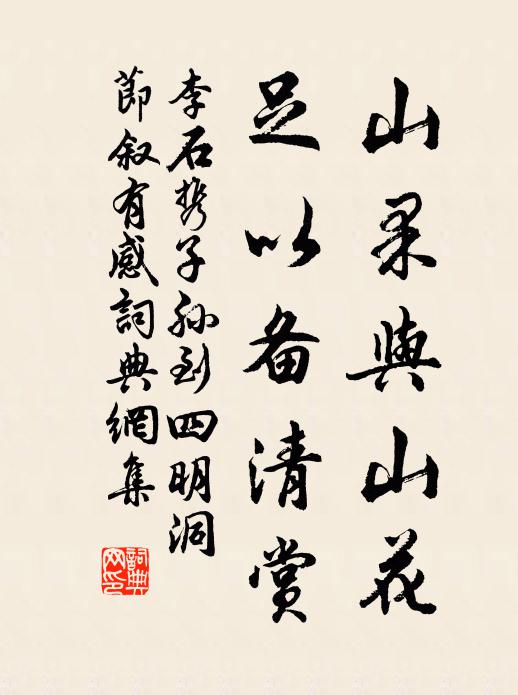 山果與山花
足以备清賞
李石携子孫到四明洞
節叙有感詞典網集
詞典网印